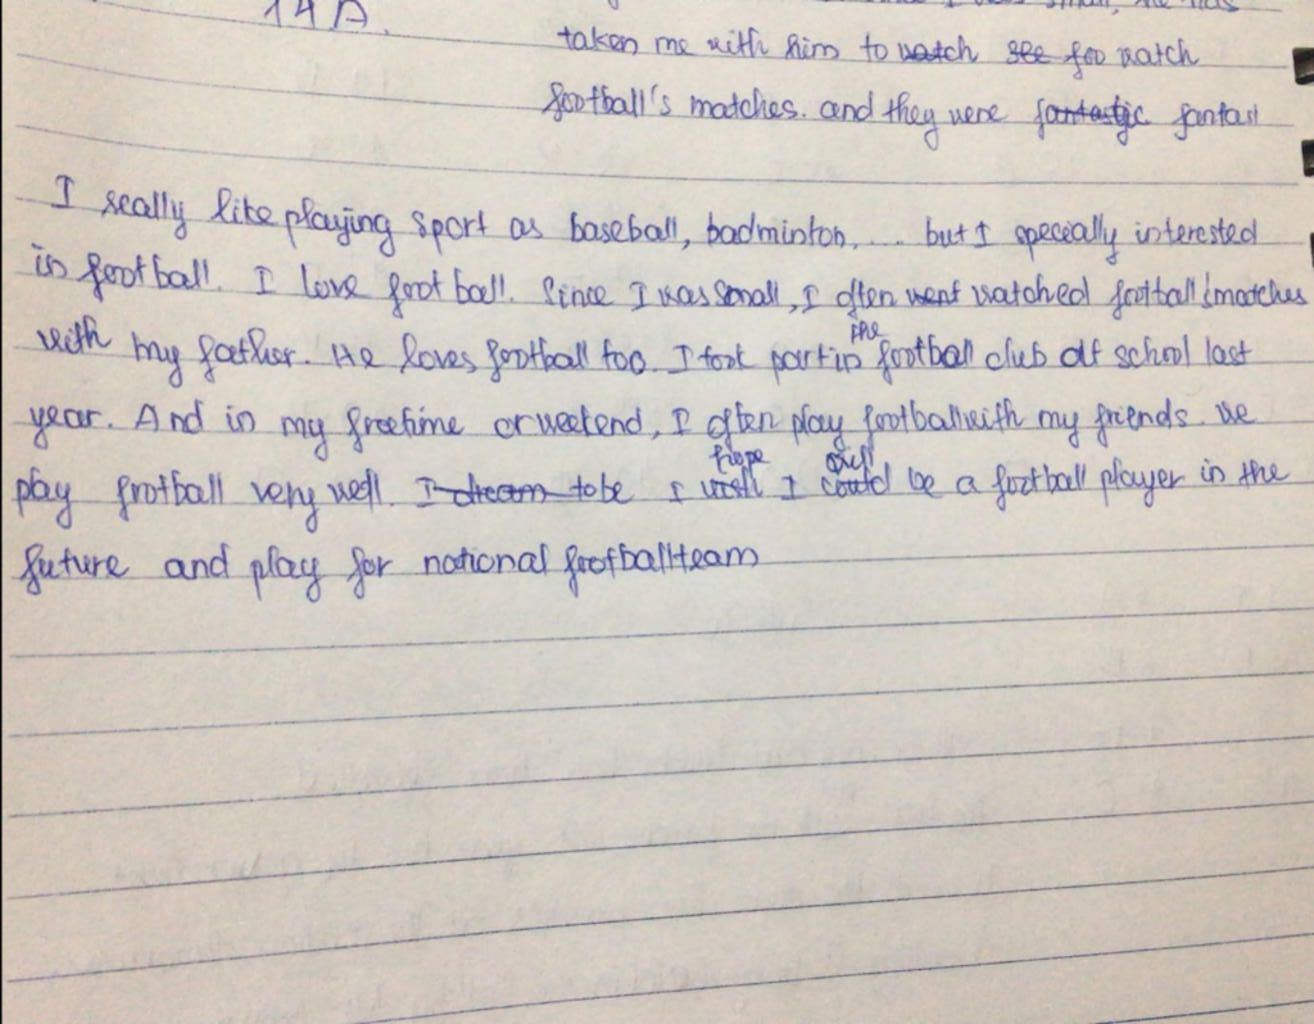 14A.
taken me with him to watch see foo watch
football's matches. and they were fantastic fantasi
I really like playing sport as baseball, badminton, ... but I specially interested
in football. I love football. Since I was small, I often went watched football's matches
with my father. He loves football too. I took part in the football club at school last
year. And in my freetime or weekend, I often play football with my friends. We
play football very well. I dream to be I wish hope I could will be a football player in the
future and play for national football team